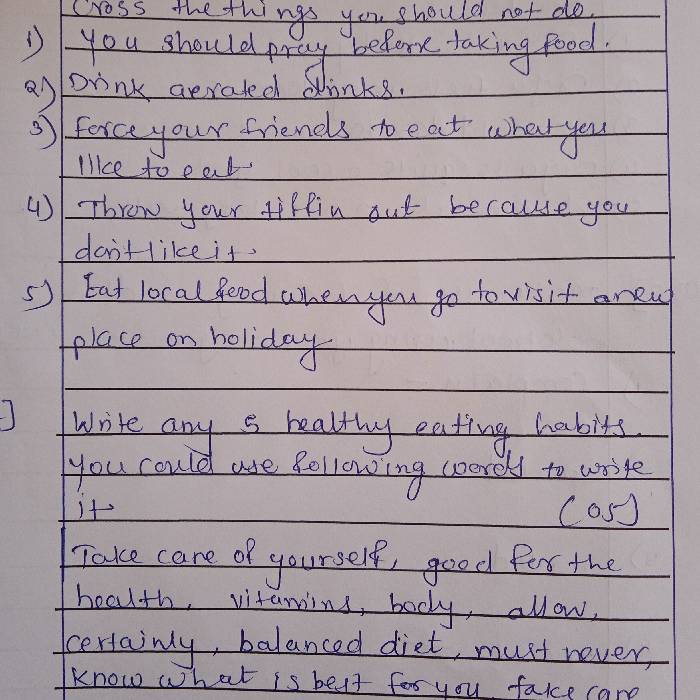 Cross the things you should not do.
1) You should pray before taking food.
2) Drink aerated drinks.
3) Force your friends to eat what you
like to eat.
4) Throw your tiffin out because you
don't like it.
5) Eat local food when you go to visit a new
place on holiday
]
Write any 5 healthy eating habits.
You could use following words to write
it (05)
Take care of yourself, good for the
health, vitamins, body, allow,
certainly, balanced diet, must never,
know what is best for you, take care